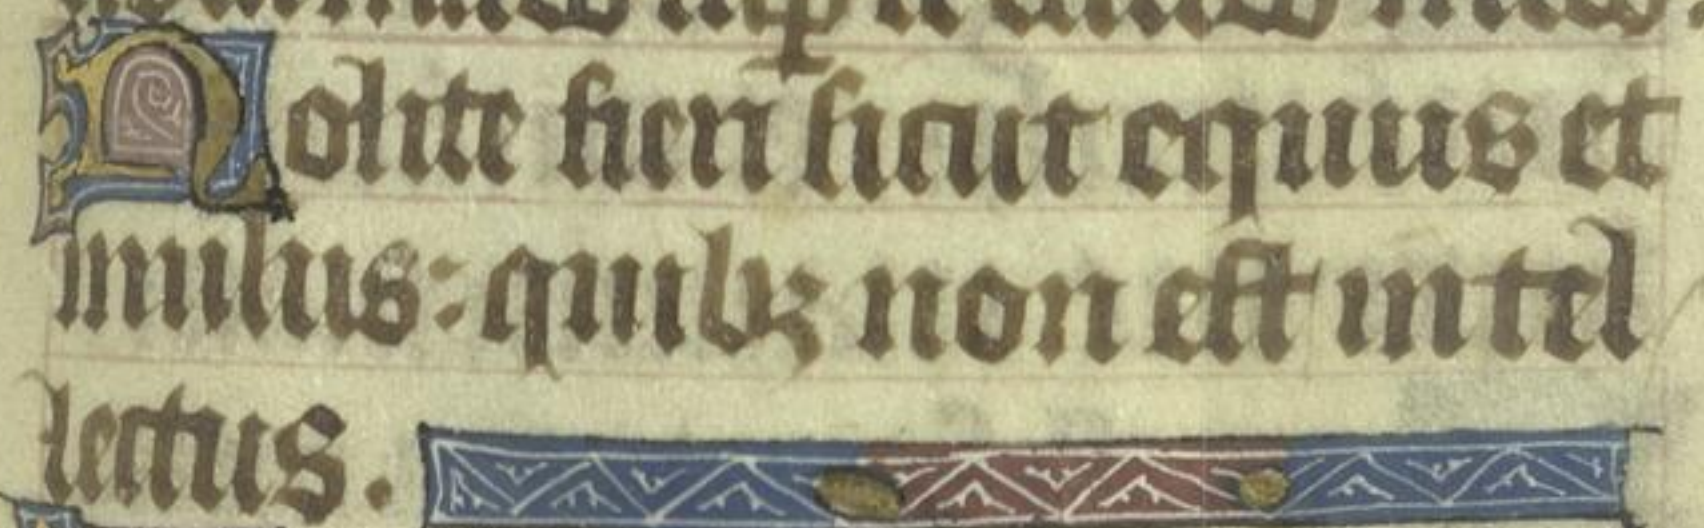 Nolite fieri sicut equus et
mulus: quibꝫ non est intel
lectus.